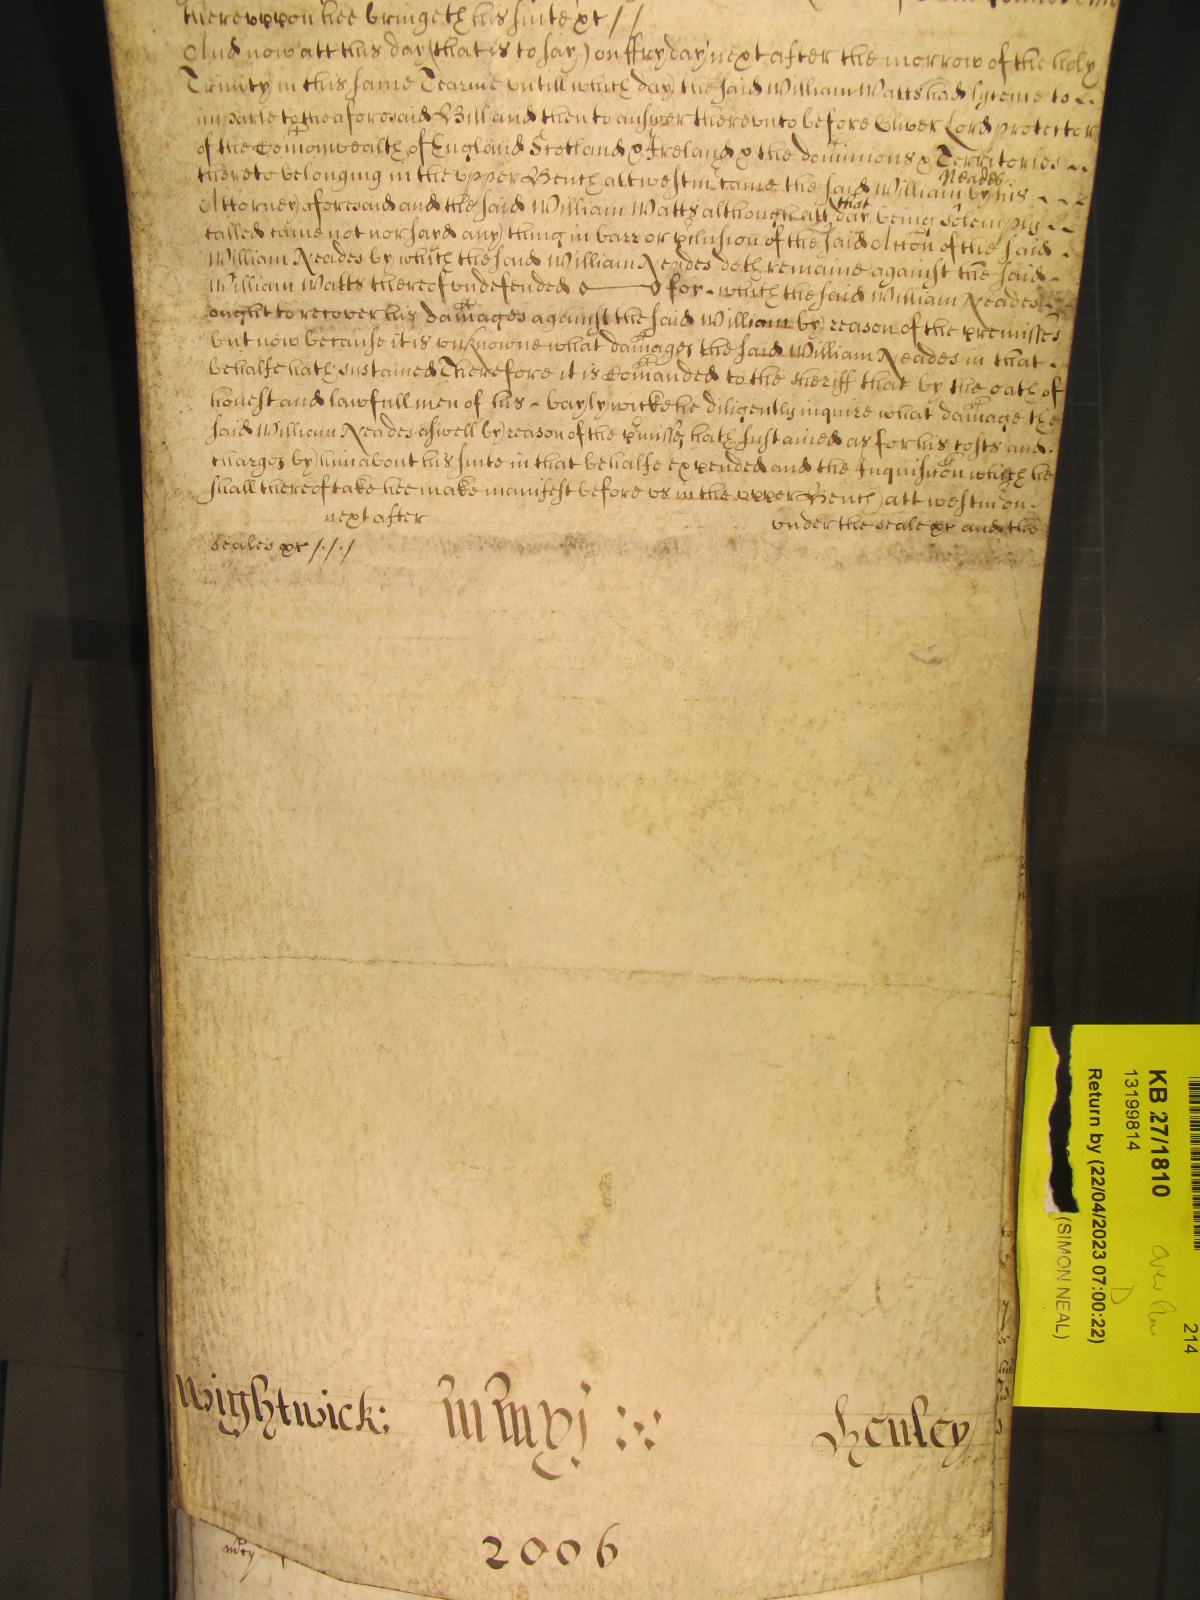 thereuppon hee bringeth his suite &c //
And now att this day (that is to say) on ffryday next after the morrow of the holy
Trinity in this same Tearme untill which day the said William Watts had lycence to
imparle to the aforesaid Bill and then to answer thereunto before Oliver Lord protector
of the Comonwealth of England Scotland & Ireland & the dominions & Territories
thereto belonging in the upper Bench att westm came the said William Neades by his
Attorney aforesaid and the said William Watts although att that day being solemply
called came not nor sayd any thing in barr or preclusion of the said Accon of the said
William Neades by which the said William Neades doth remaine against the said
William Watts thereof undefended for which the said William Neades
ought to recover his damages against the said William by reason of the premisses
but now because it is unknowne what damages the said William Neades in that
behalfe hath sustained Therefore it is Comanded to the sheriff that by the oath of
honest and lawfull men of his baylywicke he diligently inquire what damage the
said William Neades aswell by reason of the pmisses hath sustained as for his costs and
charges by him about his suite in that behalfe expended and the Inquisicon which he
shall thereof take hee make manifest before us in the upper Bench att westm on
next after under the seale &c and the
seales &c /././
Wightwick: mmvj Henley
2006
KB 27/1810
13199814
Return by (22/04/2023 07:00:22)
(SIMON NEAL)
214
D